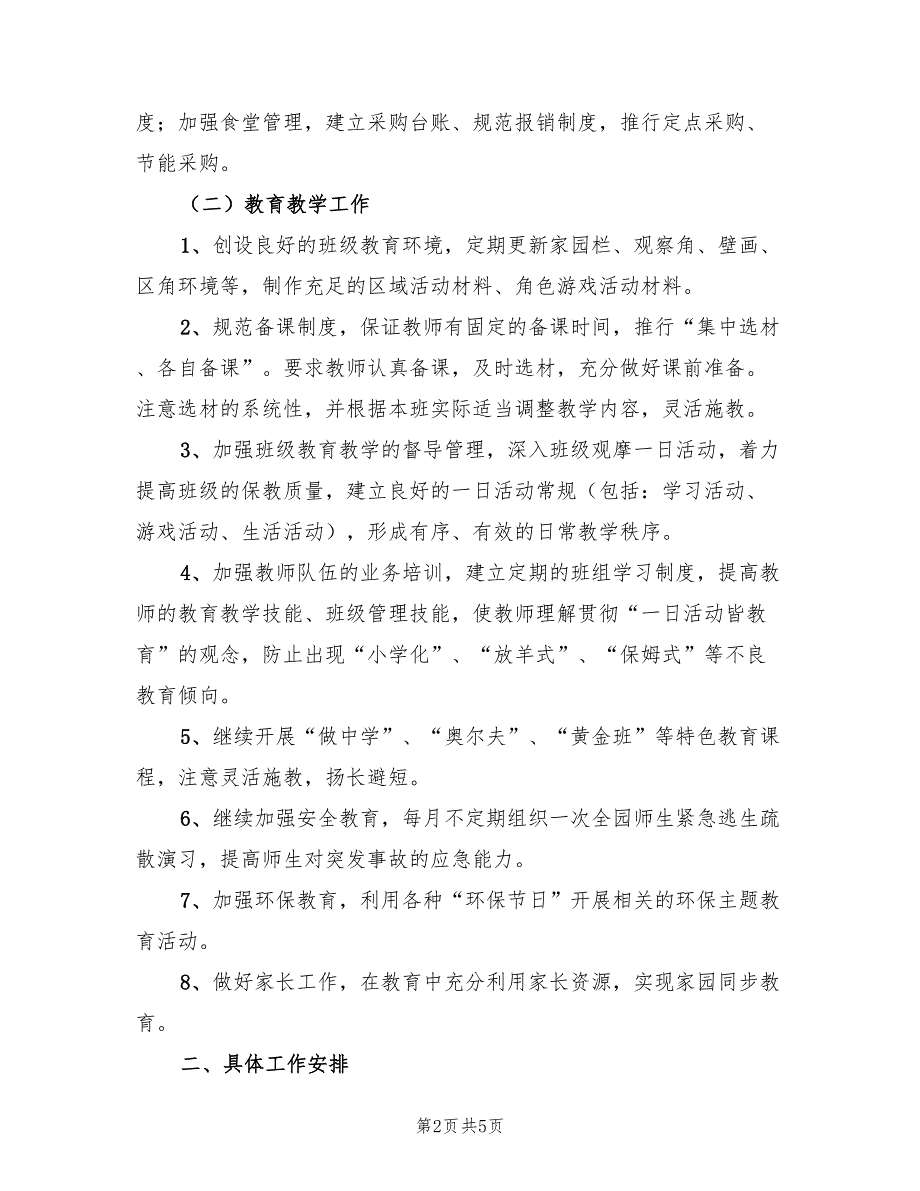 度；加强食堂管理，建立采购台账、规范报销制度，推行定点采购、
节能采购。
（二）教育教学工作
1、创设良好的班级教育环境，定期更新家园栏、观察角、壁画、
区角环境等，制作充足的区域活动材料、角色游戏活动材料。
2、规范备课制度，保证教师有固定的备课时间，推行“集中选材
、各自备课”。要求教师认真备课，及时选材，充分做好课前准备。
注意选材的系统性，并根据本班实际适当调整教学内容，灵活施教。
3、加强班级教育教学的督导管理，深入班级观摩一日活动，着力
提高班级的保教质量，建立良好的一日活动常规（包括：学习活动、
游戏活动、生活活动），形成有序、有效的日常教学秩序。
4、加强教师队伍的业务培训，建立定期的班组学习制度，提高教
师的教育教学技能、班级管理技能，使教师理解贯彻“一日活动皆教
育”的观念，防止出现“小学化”、“放羊式”、“保姆式”等不良
教育倾向。
5、继续开展“做中学”、“奥尔夫”、“黄金班”等特色教育课
程，注意灵活施教，扬长避短。
6、继续加强安全教育，每月不定期组织一次全园师生紧急逃生疏
散演习，提高师生对突发事故的应急能力。
7、加强环保教育，利用各种“环保节日”开展相关的环保主题教
育活动。
8、做好家长工作，在教育中充分利用家长资源，实现家园同步教
育。
二、具体工作安排
第2页共5页